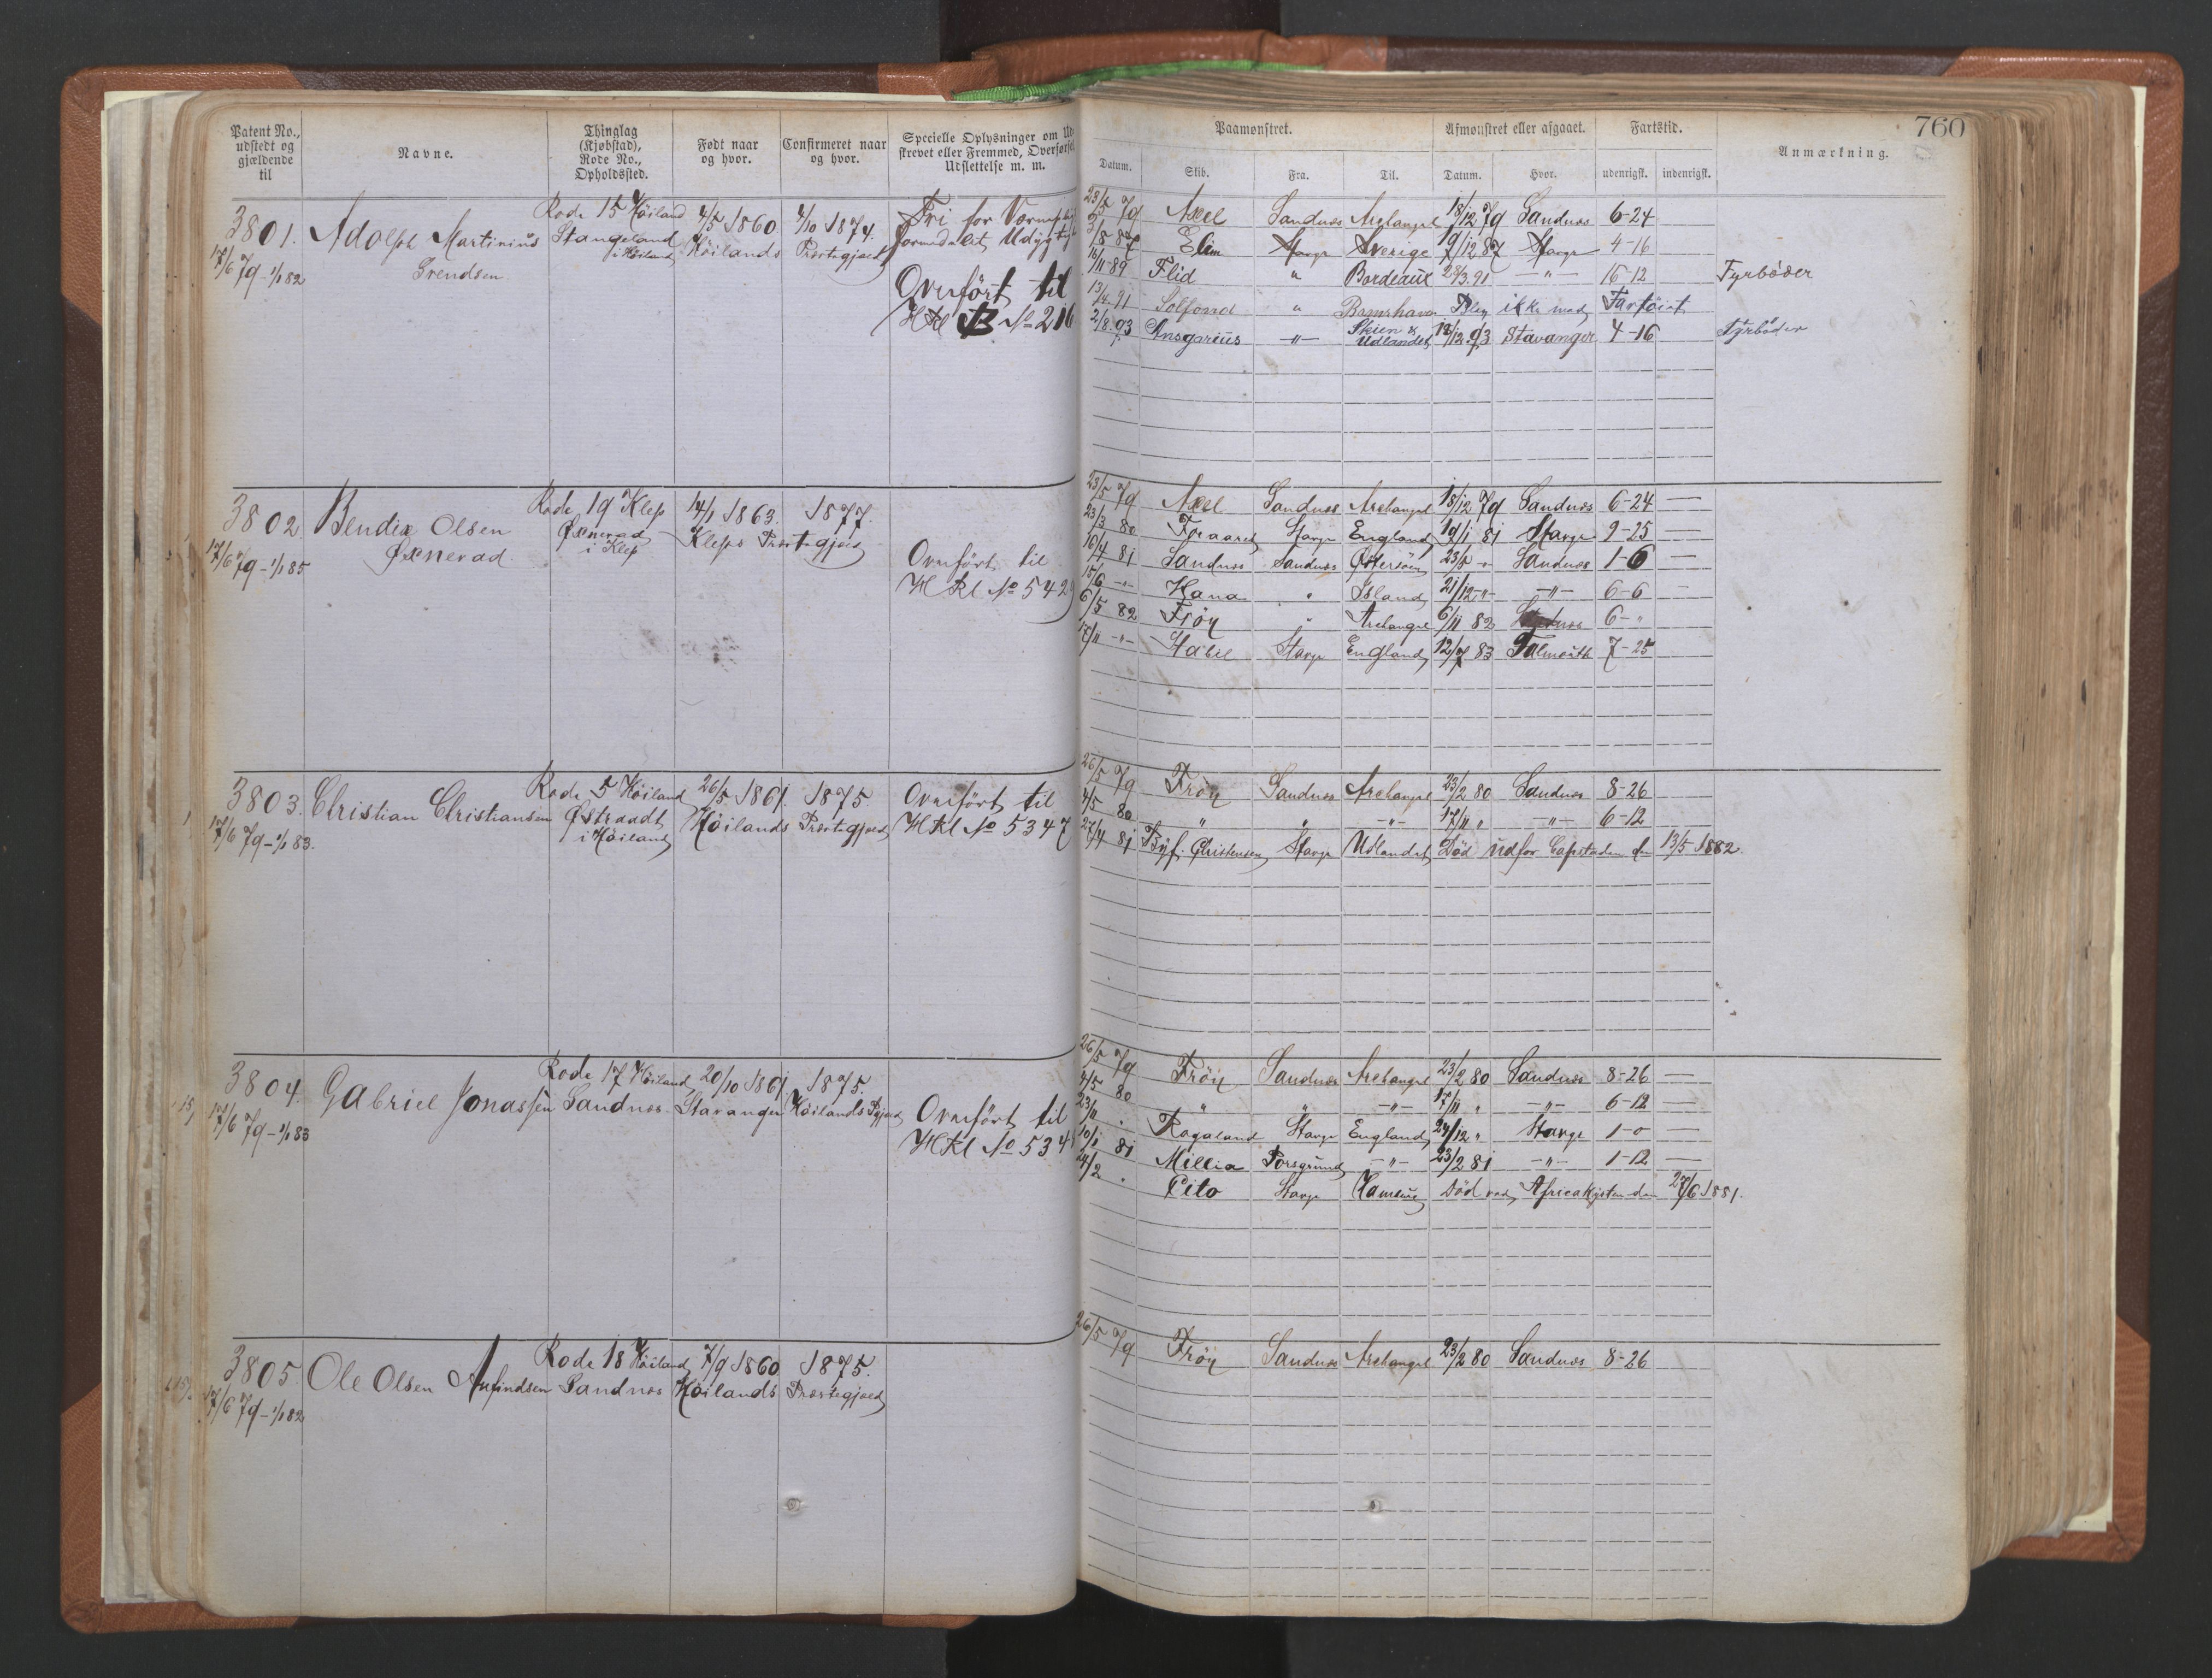 760
Patent No., udstedt og gjældende til
Navne.
Thinglag (Kjøbstad), Rode No., Opholdssted.
Født naar og hvor.
Confirmeret naar og hvor.
Specielle Oplysninger om Ud-
skrevet eller Fremmed, Overførsel,
Udslettelse m. m.
Paamønstret.
Afmønstret eller afgaaet.
Fartstid.
Anmærkning.
Datum. Skib. Fra. Til. Datum. Hvor. udenrigsk. indenrigsk.
3801. Adolph Martinius Rode 15 Höiland 4/5 1860. 4/10 1874. Fri for Værnepligt
17/6 79 - 1/1 82 Svendsen Stangeland i Höiland Höilands Præstegjæld formedelst Udygtighed
Overført til
HKl B No 216
23/5 79 Axel Sandnæs Archangel 18/12 79 Sandnæs 6-24
/8 87 Elim Stavgr Sverige 19/12 87 Stavgr 4-16
16/11 89 Flid " Bordeaux 28/3. 91 -"- 16-12 Fyrböder
13/4. 91 Solfond " Bremrhavn Blev ikke med Fartöiet
2/8. 93 Ansgarius -"- Skien & Udlandet 18/12. 93 Stavanger 4-16 Fyrböder
3802. Bendix Olsen Rode 19 Klep 14/1 1863. 1877.
17/6 79 - 1/1 85 Øxnevad Øxnevad i Klep Kleps Præstegjæld
Overført til
HKl No 542
23/5 79 Axel Sandnæs Archangel 18/12 79 Sandnæs 6-24 —
23/3 80 Foraaret Stavgr England 19/1 81 Stavgr 9-25 —
16/4 81 Sandnæs Sandnæs Østersöen 23/5 -"- Sandnæs 1-6 —
15/6 -"- Hana " Island 21/12 -"- -"- 6-6 —
6/5 82 Fröy " Archangel 6/11 82 Sandnæs 6-"
17/11 -"- Habil Stavgr England 12/7 83 Falmouth 7-25
3803. Christian Christiansen Rode 5 Höiland 26/5 1861. 1875. Overført til
17/6 79 - 1/1 83. Østraadt i Höiland Höilands Præstegjæld HKl No 5347
26/5 79 Fröy Sandnæs Archangel 23/2 80 Sandnæs 8-26
4/5 80 " " -"- 17/11 " -"- 6-12
27/4 81 Byf. Christensen Stavgr Udlandet Död udfor Capstaden den 13/5 1882.
3804. Gabriel Jonassen Rode 17 Höiland 20/10 1861 1875.
17/6 79 - 1/1 83 Sandnæs Stavanger Höilands Pgjæld Overført til
HKl No 534
26/5 79 Fröy Sandnæs Archangel 23/2 80 Sandnæs 8-26 —
4/5 80 " " -"- 17/11 " -"- 6-12 —
23/11 " Rogaland Stavgr England 24/12 " Stavgr 1-0 —
10/1 81 Millia Porsgrund -"- 23/2 81 -"- 1-12 —
24/2 " Cito Stavgr Död ved Africakysten den 27/6 1881.
3805. Ole Olsen Anfindsen Rode 18 Höiland 7/9 1860 1875.
17/6 79 - 1/1 82 Sandnæs Höilands Præstegjæld
26/5 79 Fröy Sandnæs Archangel 23/2 80 Sandnæs 8-26